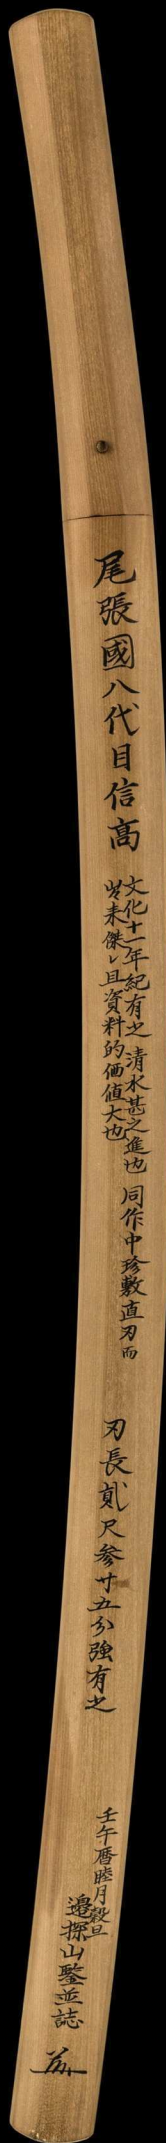 尾張國八代目信高
文化十一年紀有之 清水甚之進也 同作中珍敷直刃而
出来傑〻且資料的価値大也
刃長貮尺参寸五分強有之
壬午暦睦月穀旦
邉探山鑒並誌